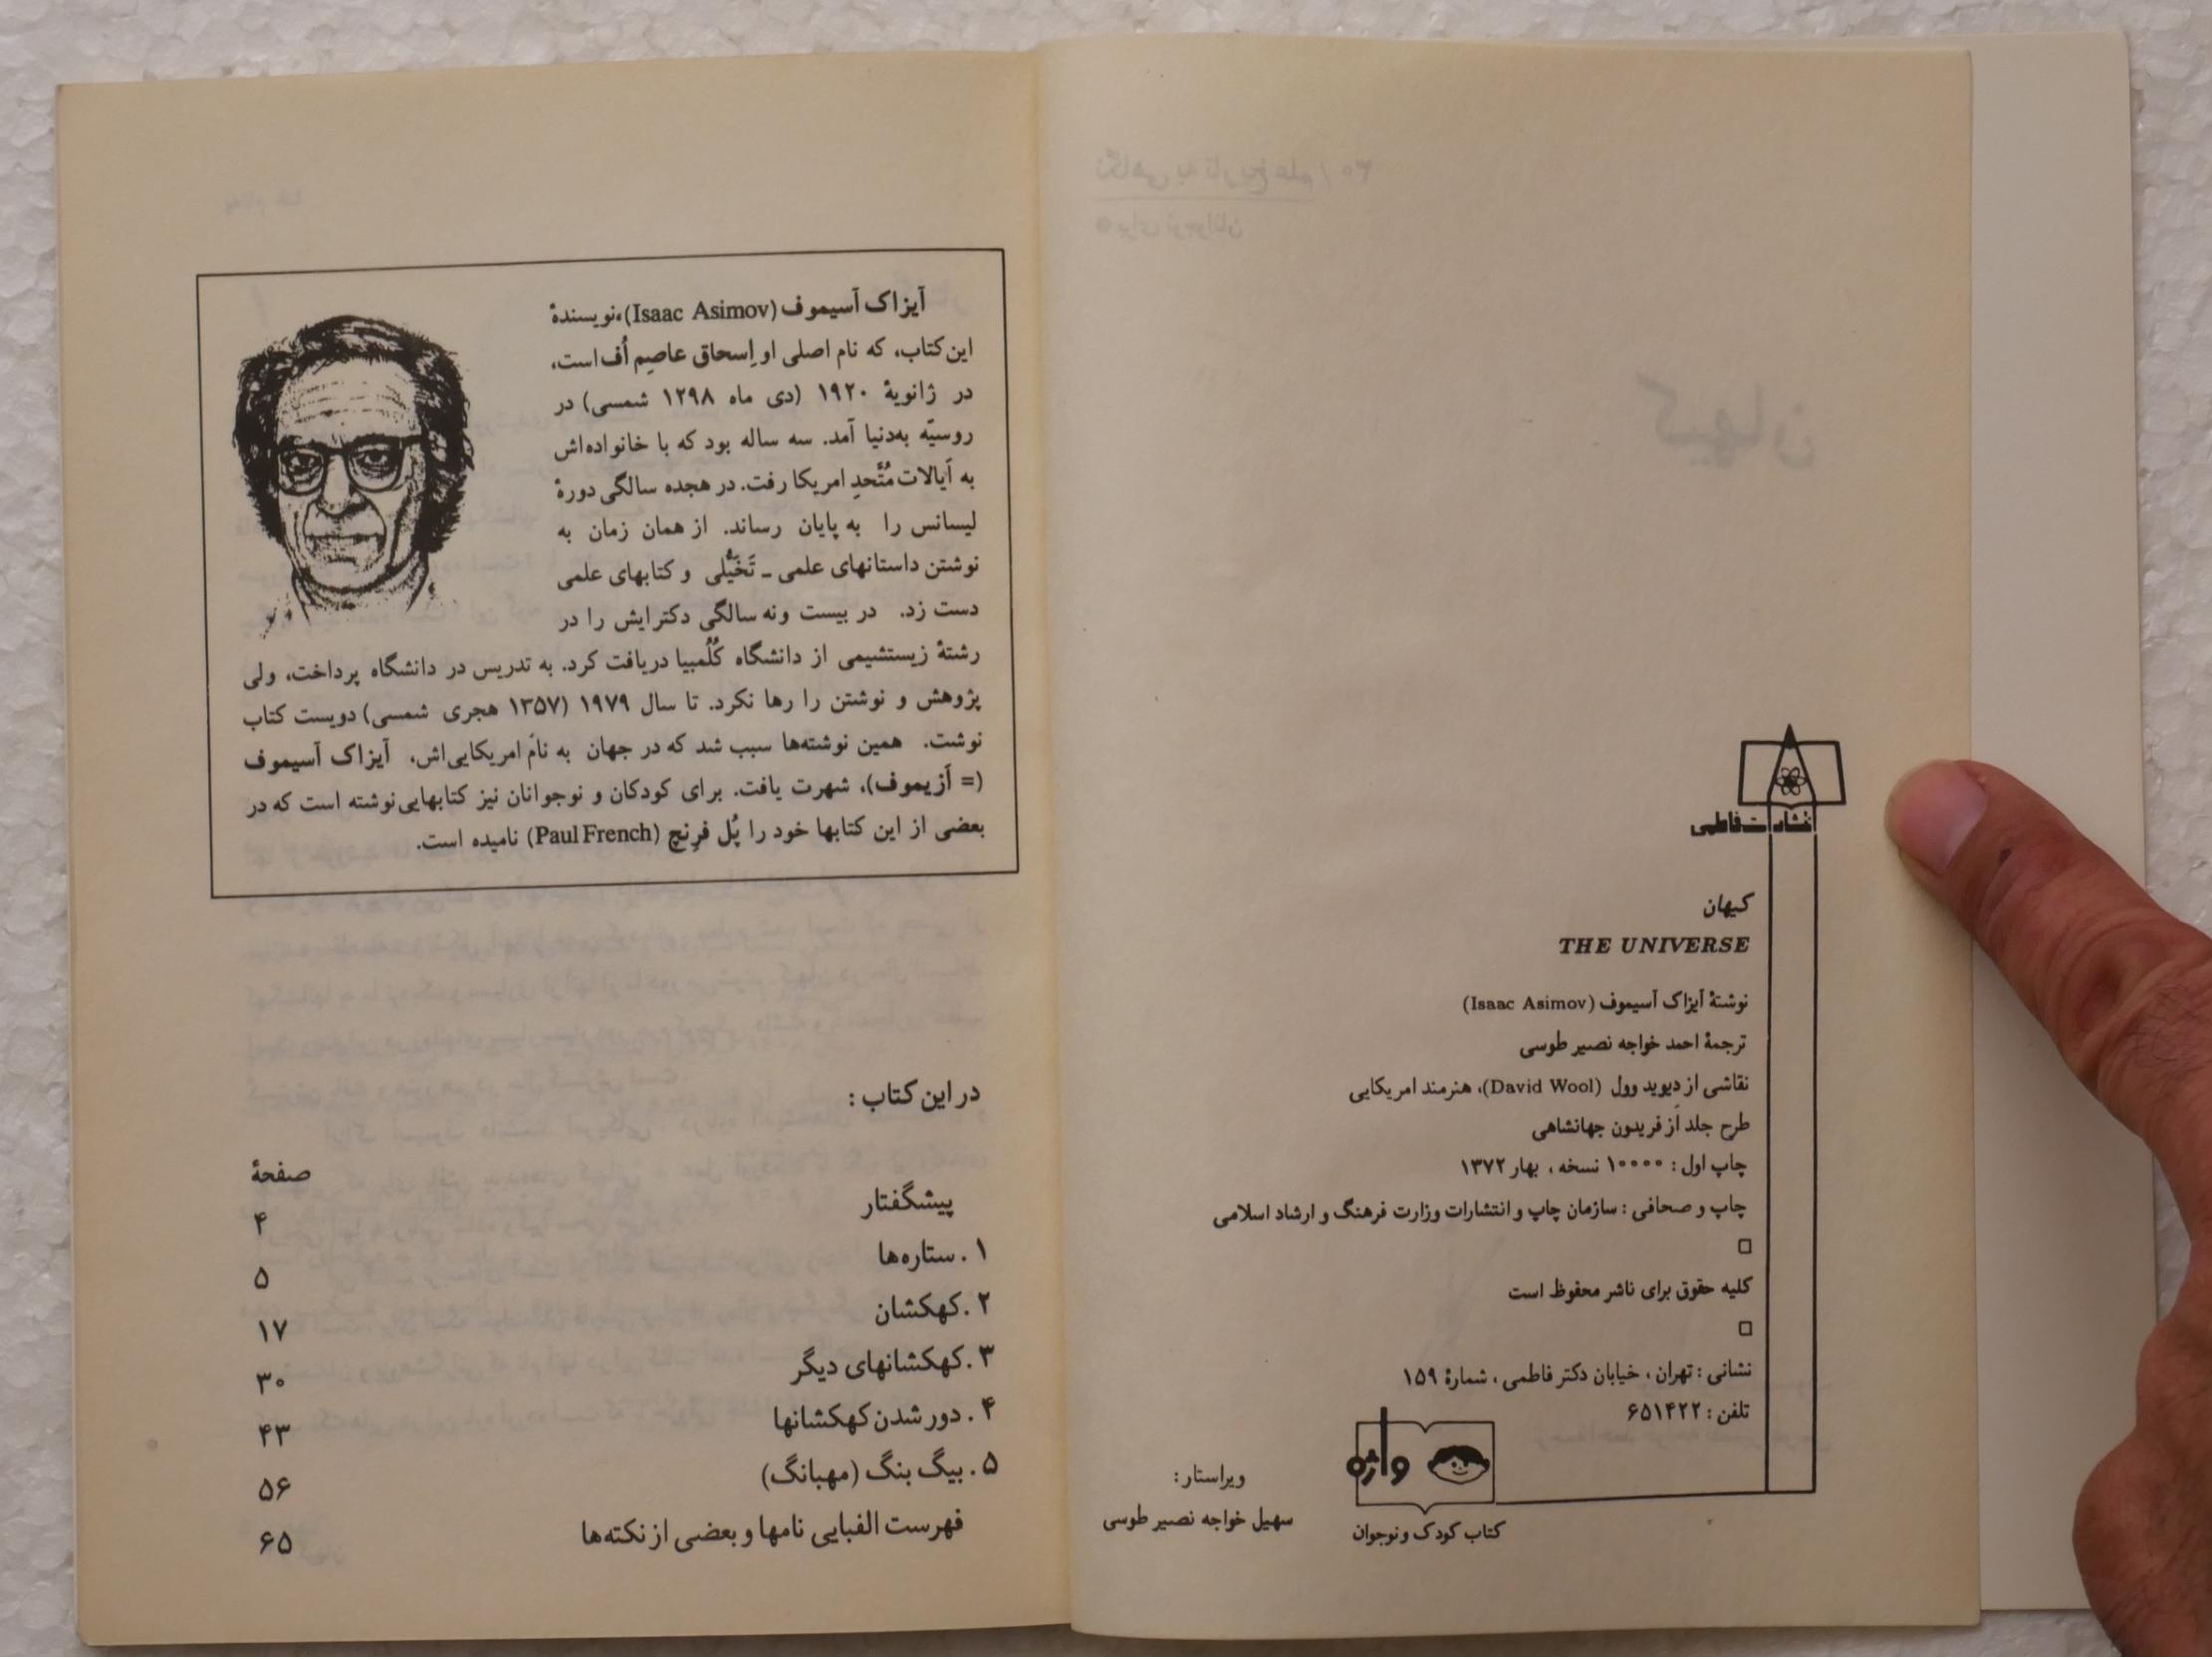 انتشارات فاطمی
کیهان
THE UNIVERSE
نوشتهٔ آیزاک آسیموف (Isaac Asimov)
ترجمهٔ احمد خواجه نصیر طوسی
نقاشی از دیوید وول (David Wool)، هنرمند امریکایی
طرح جلد از فریدون جهانشاهی
چاپ اول : ۱۰۰۰۰ نسخه ، بهار ۱۳۷۲
چاپ و صحافی : سازمان چاپ و انتشارات وزارت فرهنگ و ارشاد اسلامی
کلیه حقوق برای ناشر محفوظ است
نشانی : تهران ، خیابان دکتر فاطمی ، شمارهٔ ۱۵۹
تلفن : ۶۵۱۴۲۲
واژه
کتاب کودک و نوجوان
ویراستار:
سهیل خواجه نصیر طوسی
آیزاک آسیموف (Isaac Asimov)، نویسندهٔ
این کتاب، که نام اصلی او اِسحاق عاصِم اُف است،
در ژانویهٔ ۱۹۲۰ (دی ماه ۱۲۹۸ شمسی) در
روسیّه به‌دنیا آمد. سه ساله بود که با خانواده‌اش
به اَیالات مُتَّحدِ امریکا رفت. در هجده سالگی دورهٔ
لیسانس را به پایان رساند. از همان زمان به
نوشتن داستانهای علمی ـ تَخَیُّلی و کتابهای علمی
دست زد. در بیست ونه سالگی دکترایش را در
رشتهٔ زیستشیمی از دانشگاه کُلُمبیا دریافت کرد. به تدریس در دانشگاه پرداخت، ولی
پژوهش و نوشتن را رها نکرد. تا سال ۱۹۷۹ (۱۳۵۷ هجری شمسی) دویست کتاب
نوشت. همین نوشته‌ها سبب شد که در جهان به نام امریکایی‌اش، آیزاک آسیموف
(= اَزیموف)، شهرت یافت. برای کودکان و نوجوانان نیز کتابهایی نوشته است که در
بعضی از این کتابها خود را پُل فرِنچ (Paul French) نامیده است.
در این کتاب :
صفحهٔ
پیشگفتار ۴
۱ . ستاره‌ها ۵
۲ . کهکشان ۱۷
۳ . کهکشانهای دیگر ۳۰
۴ . دور شدن کهکشانها ۴۳
۵ . بیگ بنگ (مهبانگ) ۵۶
فهرست الفبایی نامها و بعضی از نکته‌ها ۶۵